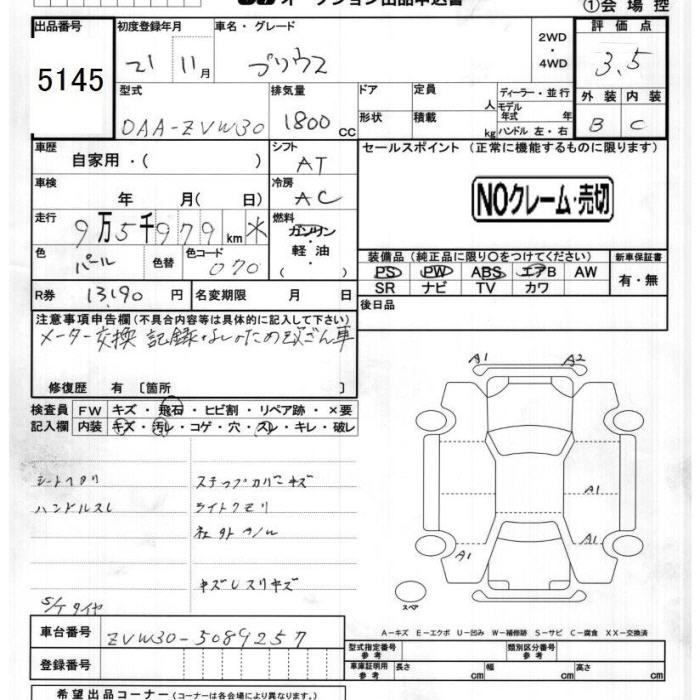 オークション出品申込書
①会場控
出品番号 初度登録年月 車名・グレード 評価点
5145 21 11月 プリウス 2WD・4WD 3.5
型式 排気量 ドア 定員 人 ディーラー・並行 外装 内装
DAA-ZVW30 1800CC 形状 積載 kg モデル年式 年 ハンドル 左・右 B C
車歴 シフト セールスポイント (正常に機能するものに限ります)
自家用・( ) AT
車検 冷房 NOクレーム・売切
年 月( 日) AC
走行 燃料
9万5千979km ※ ガソリン・軽油・( )
色 色替 色コード 装備品(純正品に限り〇をつけてください) 新車保証書
パール 070 PS PW ABS エアB AW 有・無
SR ナビ TV カワ
R券 13,190円 名変期限 月 日 後日品
注意事項申告欄(不具合内容等は具体的に記入して下さい)
メーター交換 記録なしのため改ざん車
修復歴 有〔箇所 〕
検査員 FW キズ・飛石・ヒビ割・リペア跡・×要
記入欄 内装 キズ・汚レ・コゲ・穴・スレ・キレ・破レ
A1 A2
シートヘタリ ステップカバーキズ
ハンドルスレ ライトクモリ
A1
社外ホイル
A1 A1
キズレスリキズ
S/Tタイヤ
スペア
A-キズ E-エクボ U-凹み W-補修跡 S-サビ C-腐食 XX-交換済
車台番号 ZVW30-5089257
型式指定番号 参考 類別区分番号 参考
登録番号 車庫証明用 参考 長さ cm 幅 cm 高さ cm
希望出品コーナー(コーナーは各会場により異なります。)